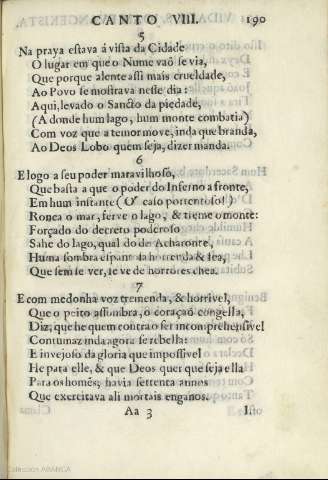 CANTO VIII. 190
5
Na praya estava á vista da Cidade
O lugar em que o Nume vaõ se via,
Que porque alente assi mais crueldade,
Ao Povo se mostrava nesse dia:
Aqui, levado o Sancto da piedade,
(A donde hum lago, hum monte combatia)
Com voz que a temor move, inda que branda,
Ao Deos Lobo quem seja, dizer manda.
6
E logo a seu poder maravilhoso,
Que basta a que o poder do Inferno afronte,
Em hum instante (O' caso portentoso!)
Ronca o mar, ferve o lago, & treme o monte:
Forçado do decreto poderoso
Sahe do lago, qual do de Acharonte,
Huma sombra espantosa horrenda & fea,
Que sem se ver, se ve de horrores chea.
7
E com medonha voz tremenda, & horrivel,
Que o peito assombra, o coraçaõ congella,
Diz, que he quem contra o ser incomprehensivel
Contumaz inda agora se rebella:
E invejoso da gloria que impossivel
He para elle, & que Deos quer que seja ella
Para os homẽs; havia settenta annos
Que exercitava ali mortais enganos.
Aa 3 Isto
Colección ABANCA